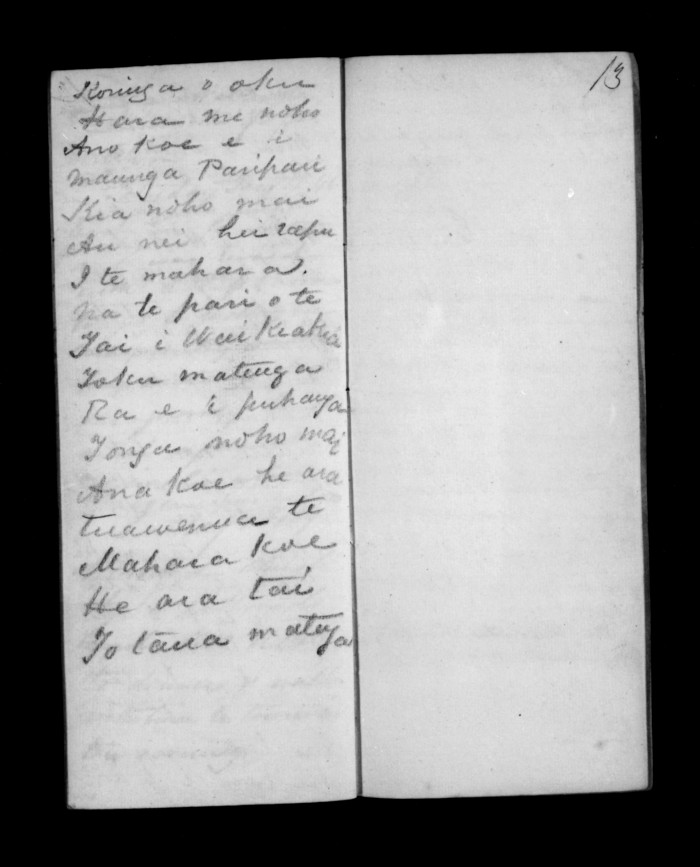 Koringa o oku
Hara me noho
Ano koe e i
maunga Paripari
Kia noho mai
Au nei hei rapu
I te mahara.
na te pari o te
Tai i Waikiakia
Toku matenga
Ra e i puhanga
Tonga noho mai
Ana koe he ara
tuawenua te
Mahara koe
He ara tai
To taua matenga
13